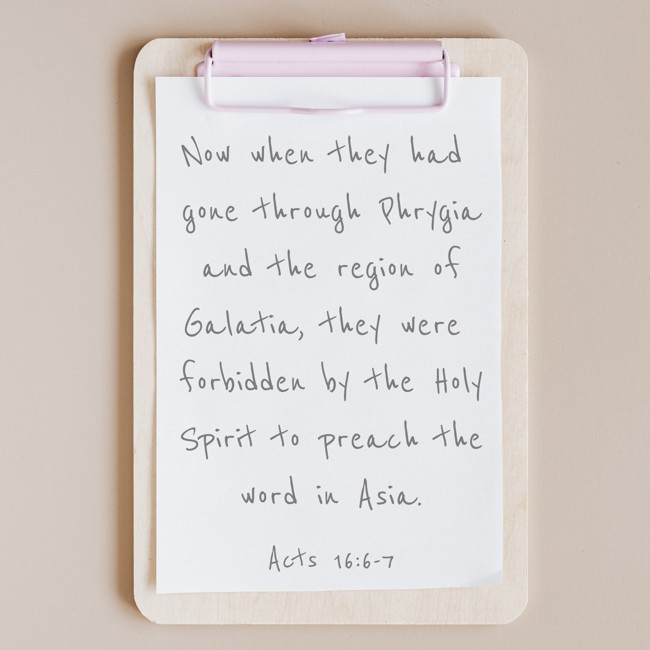 Now when they had
gone through Phrygia
and the region of
Galatia, they were
forbidden by the Holy
Spirit to preach the
word in Asia.
Acts 16:6-7